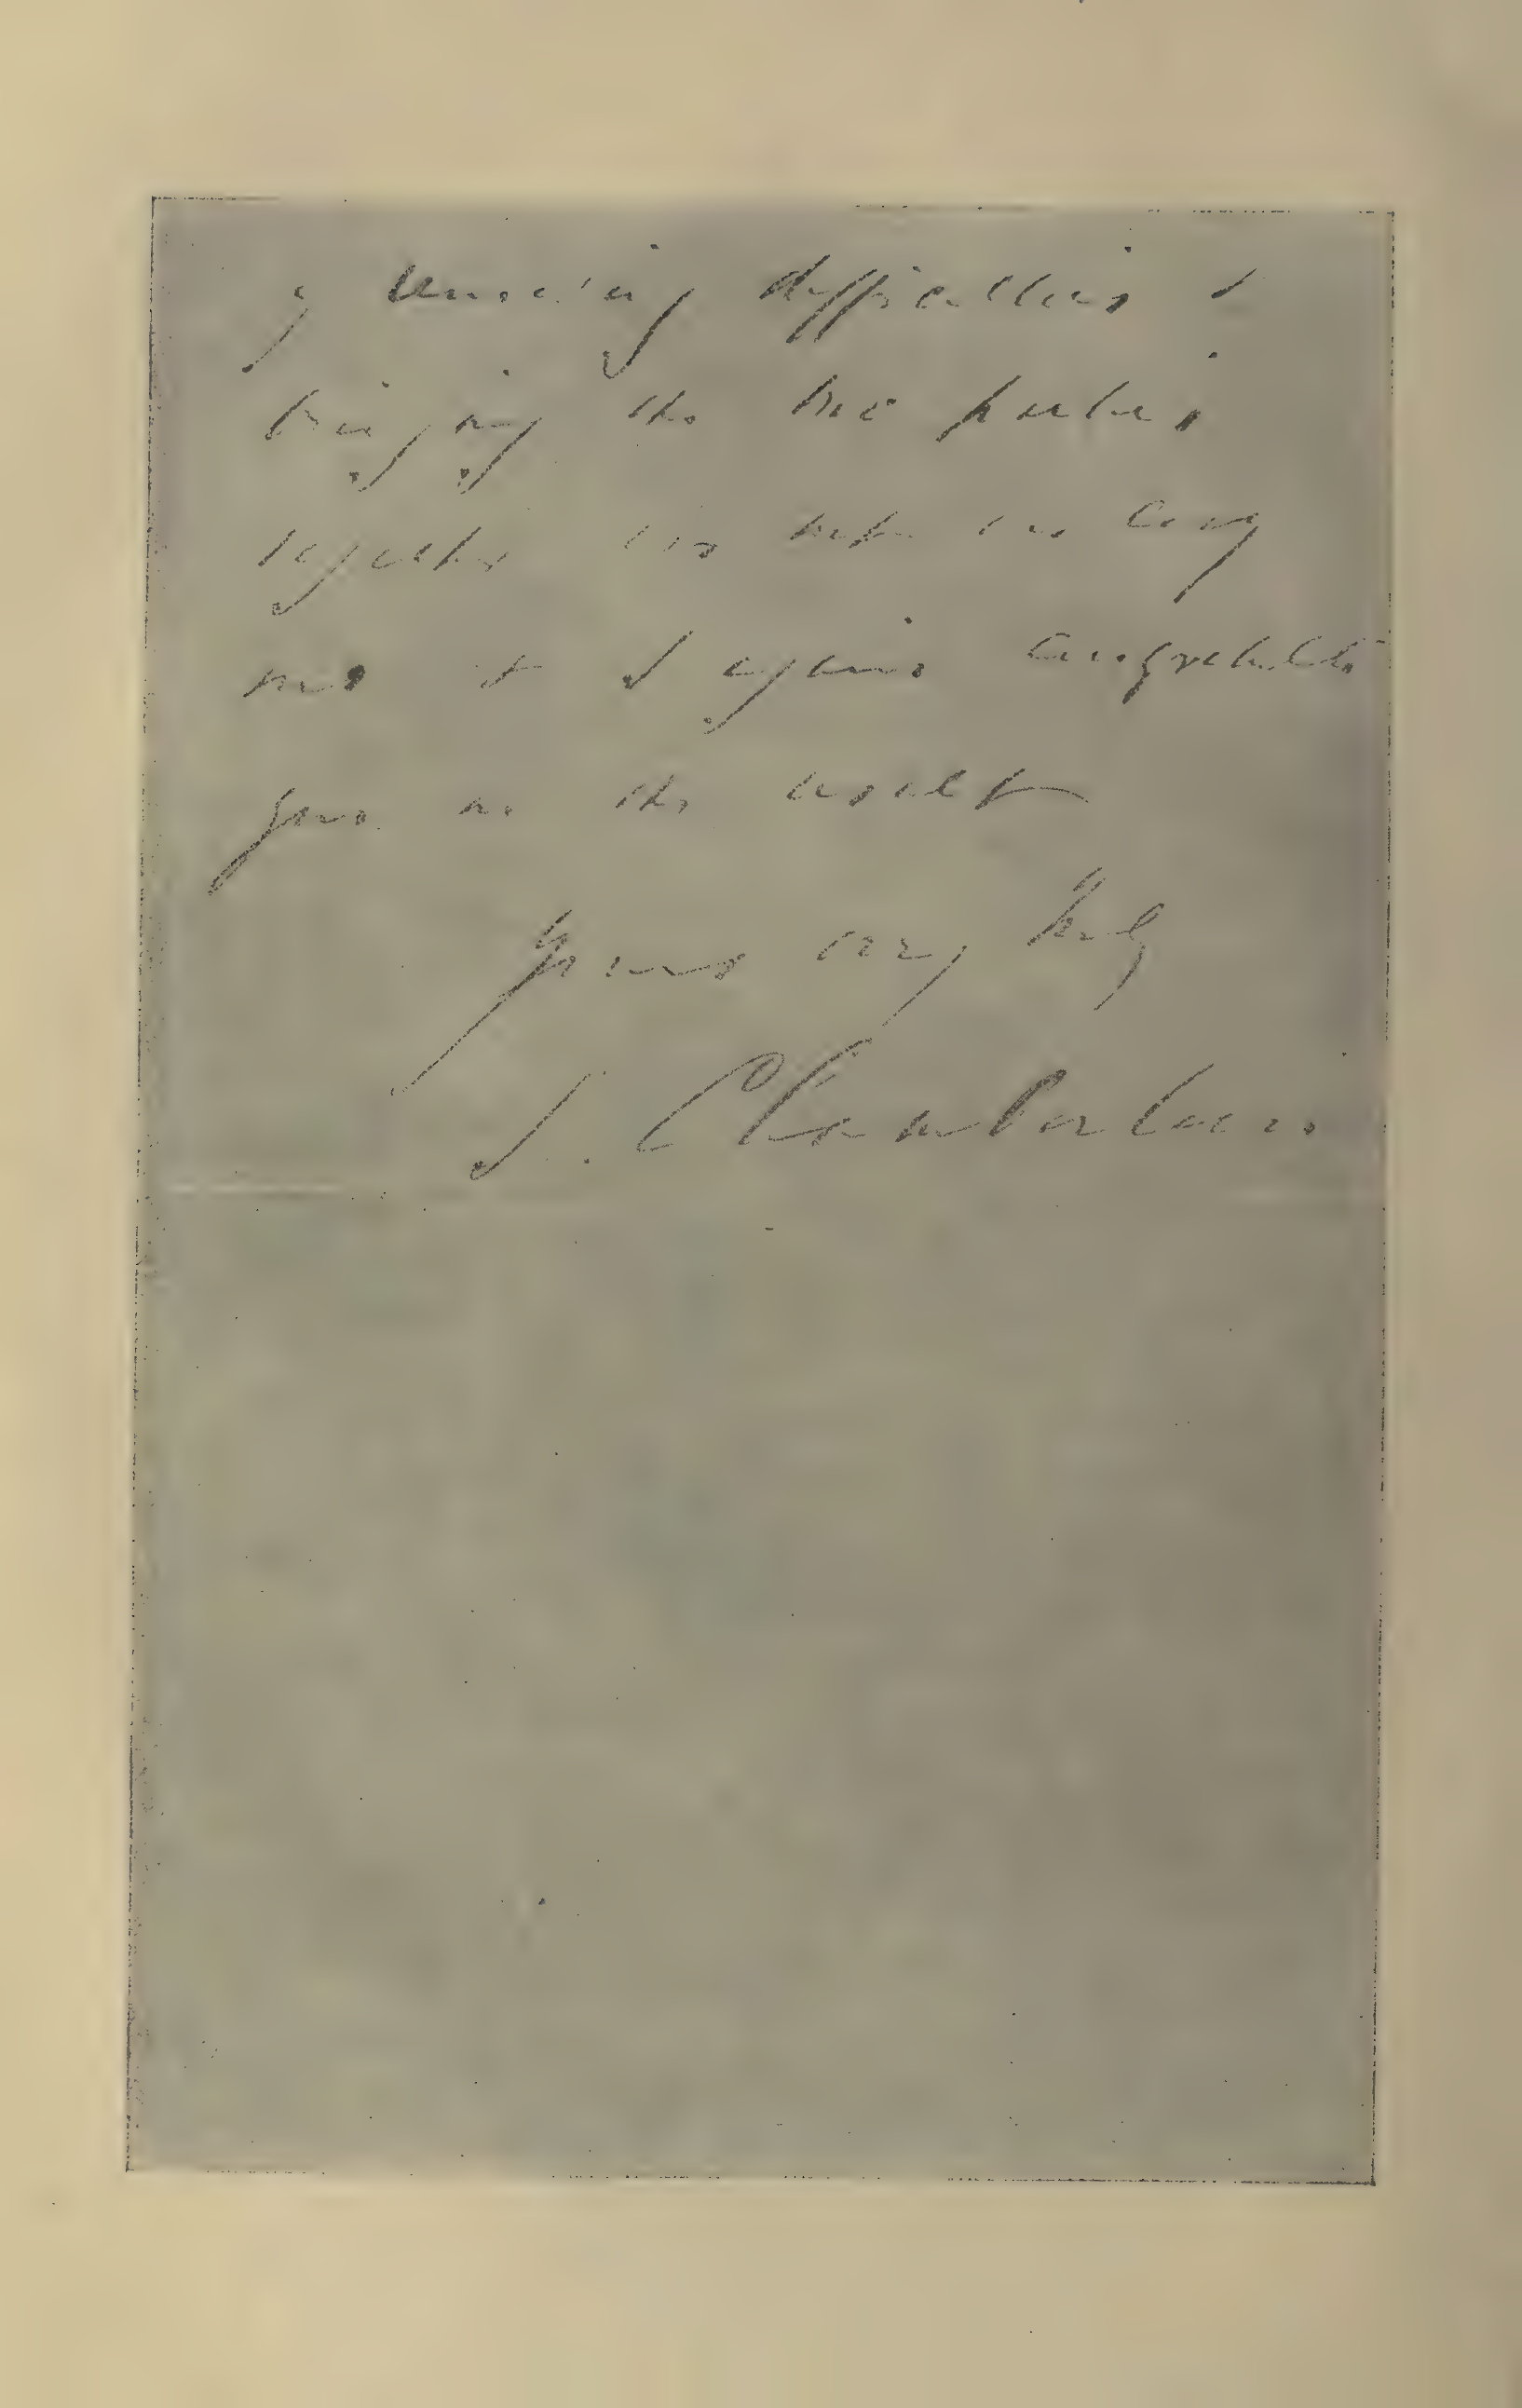 of removing difficulties &
bringing the two parties
together is not an easy
one & I again congratulate
you on the result
Yours very truly
J. Chamberlain